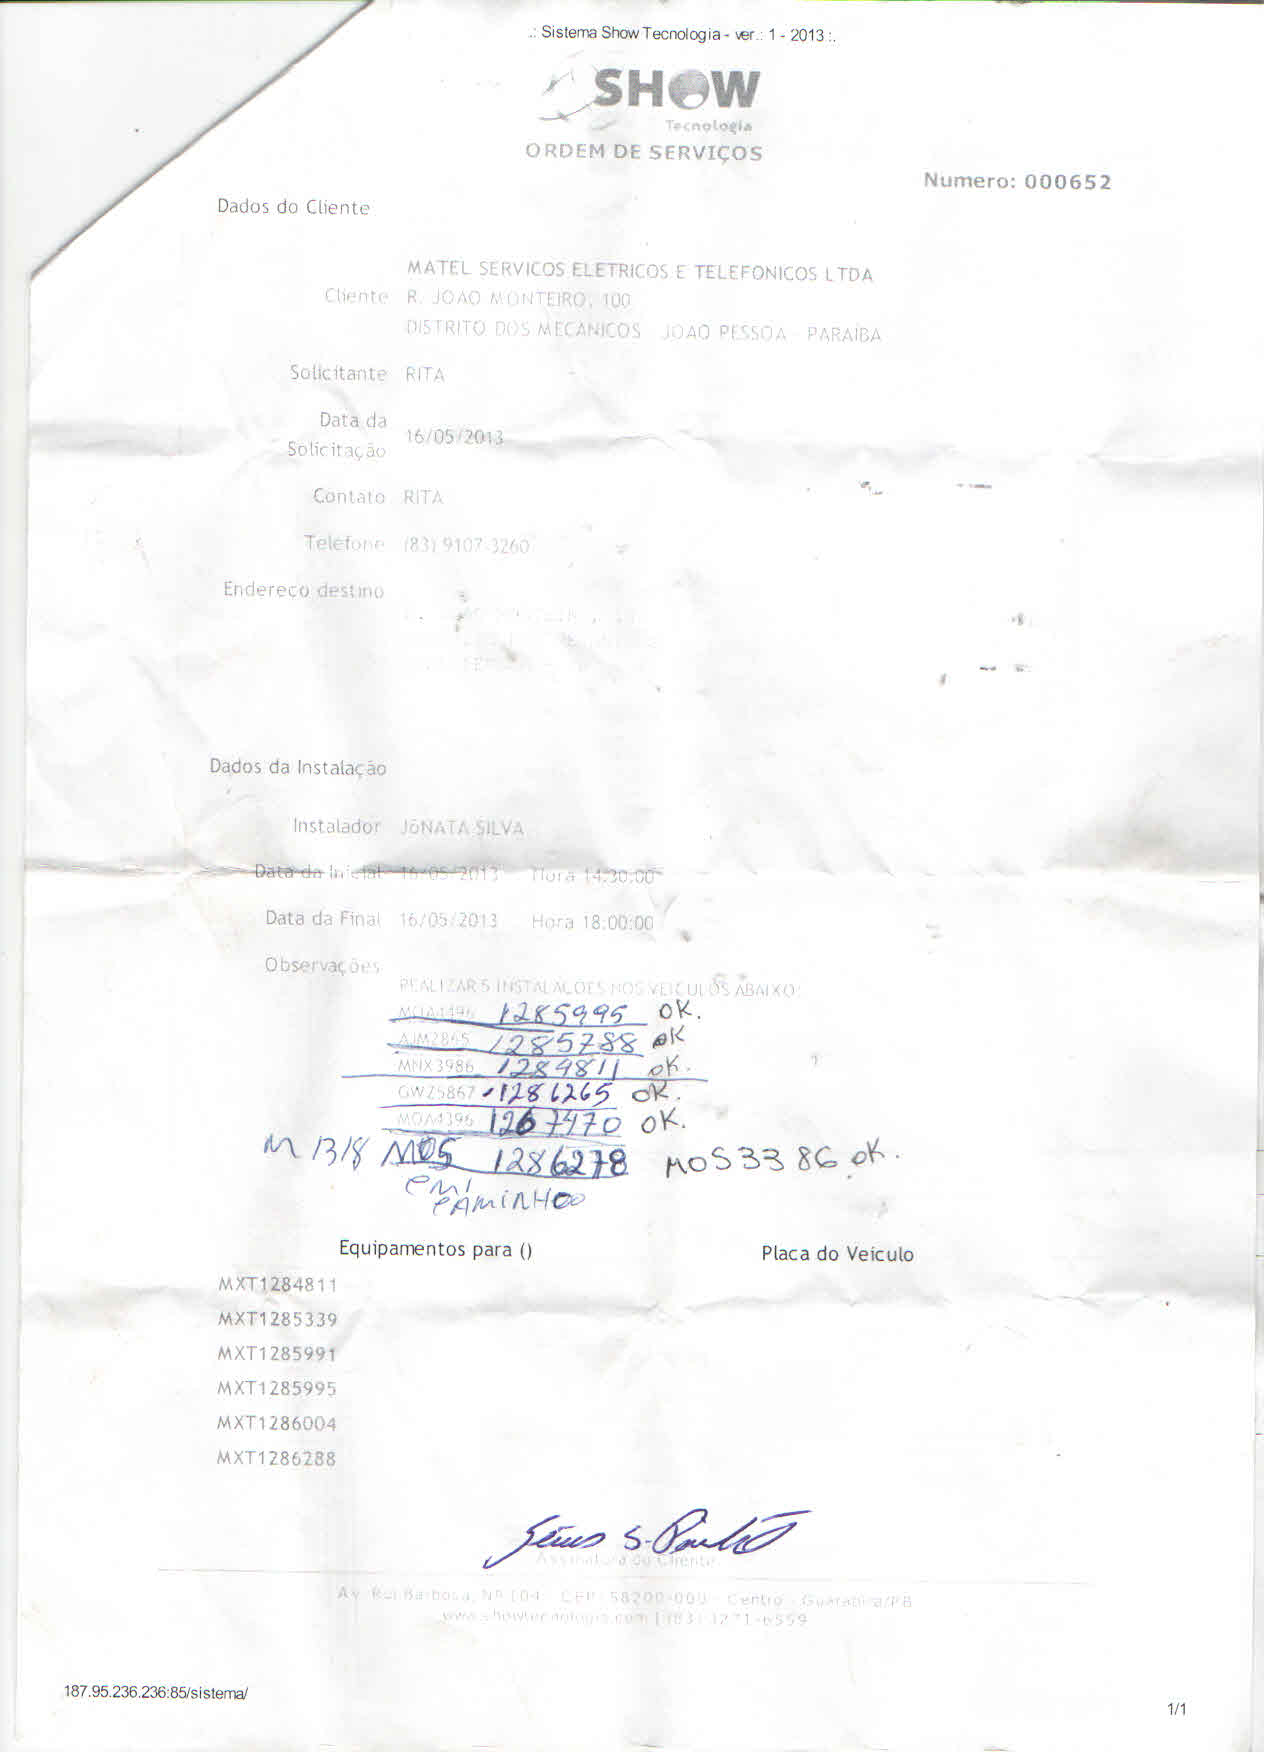 .: Sistema Show Tecnologia - ver.: 1 - 2013 :.
SHOW
Tecnologia
ORDEM DE SERVIÇOS
Numero: 000652
Dados do Cliente
MATEL SERVICOS ELETRICOS E TELEFONICOS LTDA
Cliente R. JOAO MONTEIRO, 100
DISTRITO DOS MECANICOS JOAO PESSOA - PARAÍBA
Solicitante RITA
Data da
Solicitação 16/05/2013
Contato RITA
Telefone (83) 9107-3260
Endereco destino
Dados da Instalação
Instalador JÔNATA SILVA
Data da Inicial 16/05/2013 Hora 14:30:00
Data da Final 16/05/2013 Hora 18:00:00
Observações
REALIZAR 5 INSTALAÇOES NOS VEICULOS ABAIXO:
MOA4496 1285995 OK.
AJM2865 1285788 OK
MNX3986 1284811 OK.
GWZ5867 1286265 OK.
MOA4396 1267470 OK.
M 1318 MOS 1286278 MOS3386 OK.
EM
CAMINHOO
Equipamentos para () Placa do Veículo
MXT1284811
MXT1285339
MXT1285991
MXT1285995
MXT1286004
MXT1286288
Assinatura do Cliente
Av. Rui Barbosa, Nº 104 - CEP: 58200-000 - Centro - Guarabira/PB
www.showtecnologia.com | (83) 3271-6559
187.95.236.236:85/sistema/
1/1